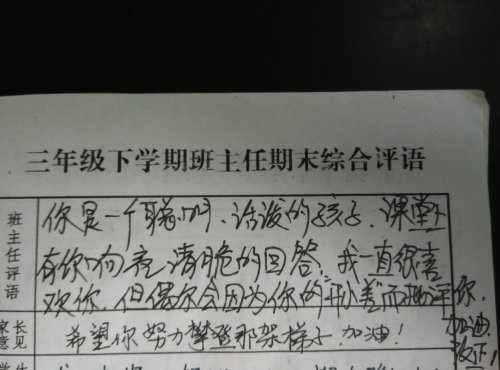 三年级下学期班主任期末综合评语
班主任评语
你是一个聪明、活泼的孩子。课堂上
有你响亮清脆的回答。我一直很喜
欢你。但偶尔会因为你的"开小差"而批评你.
加油
改下!
家长意见
希望你努力攀登那架梯子.加油!